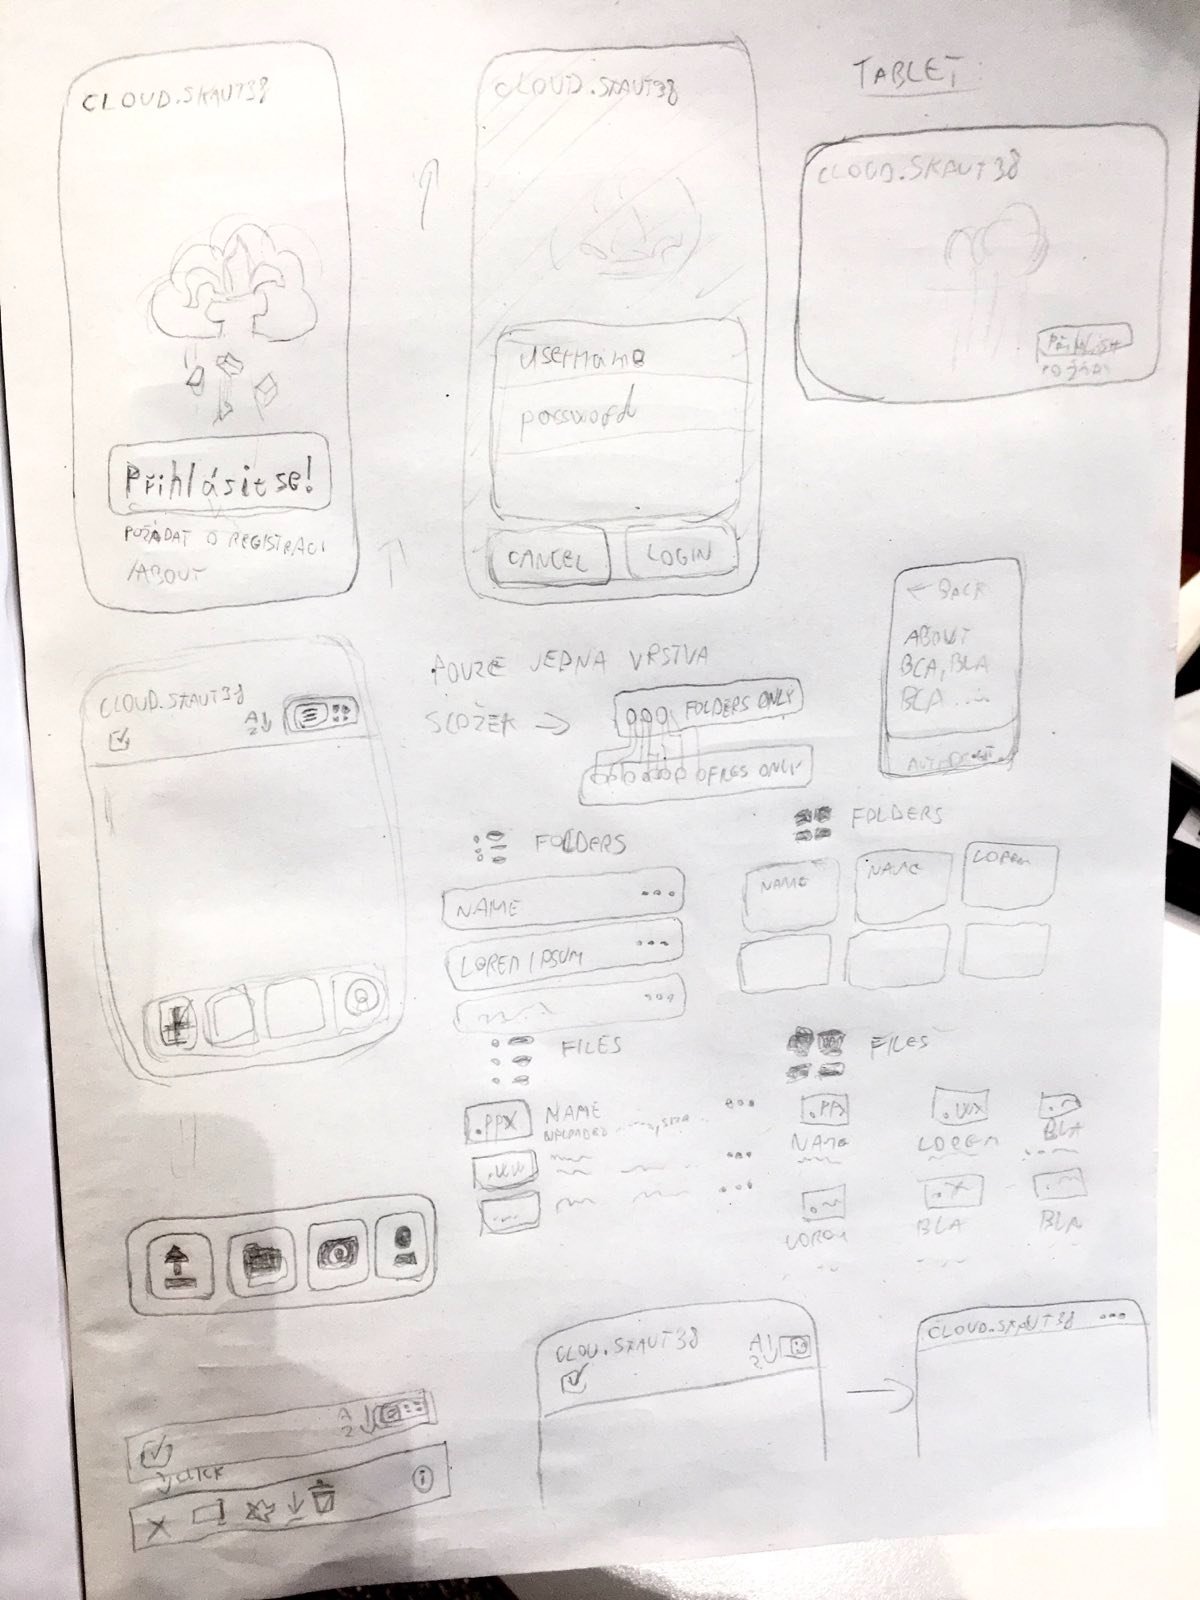 CLOUD.SKAUT38
Přihlásit se!
POŽÁDAT O REGISTRACI
/ABOUT
CLOUD.SKAUT38
username
password
CANCEL
LOGIN
TABLET
CLOUD.SKAUT38
Přihlásit
← BACK
ABOUT
BLA, BLA
BLA ...
CLOUD.SKAUT38
A
Z
POUZE JEDNA VRSTVA
SLOŽEK →
FOLDERS ONLY
FILES ONLY
FOLDERS
NAME
LOREM IPSUM
FOLDERS
NAME
NAME
LOREM
FILES
.PPX
NAME
UPLOADED
FILES
.PPX
NAME
LOREM
BLA
LOREM
.X
BLA
BLA
CLOU.SKAUT38
A
Z
CLOUD.SKAUT38 ...
A
Z
CLICK
X
i